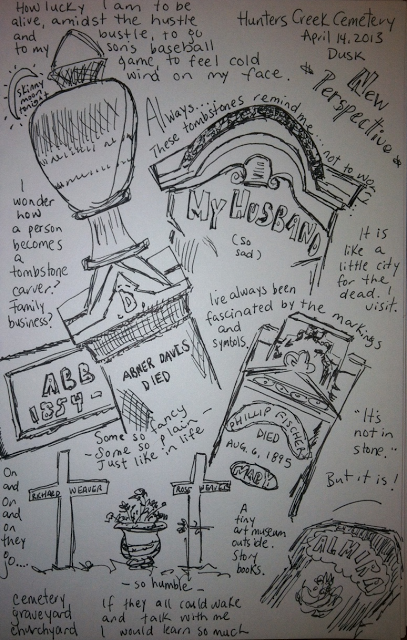 How lucky I am to be
alive, amidst the hustle
and bustle, to go
to my son's baseball
game, to feel cold
wind on my face.
Hunters Creek Cemetery
April 14, 2013
Dusk
* New
Perspective *
skinny
moon
tonight
Always....
These tombstones remind me... not to worry
MY HUSBAND
(so
sad)
I
wonder
how
a person
becomes
a
tombstone
carver?
Family
business?
It is
like a
little city
for the
dead. I
visit.
I've always been
fascinated by the markings
and
symbols.
D
ABNER DAVES
DIED
ABB
1854-
Some so fancy
- Some so plain -
Just like in life
PHILLIP FISCHER
DIED
AUG. 6, 1895
MARY
"It's
not in
stone."
But it is!
On
and
on
and
on
they
go...
RICHARD WEAVER
ROSE WEAVER
A
tiny
art museum
outside.
Story
books.
ALMIRA
- so humble -
cemetery
graveyard
churchyard
If they all could wake
and talk with me
I would learn so much